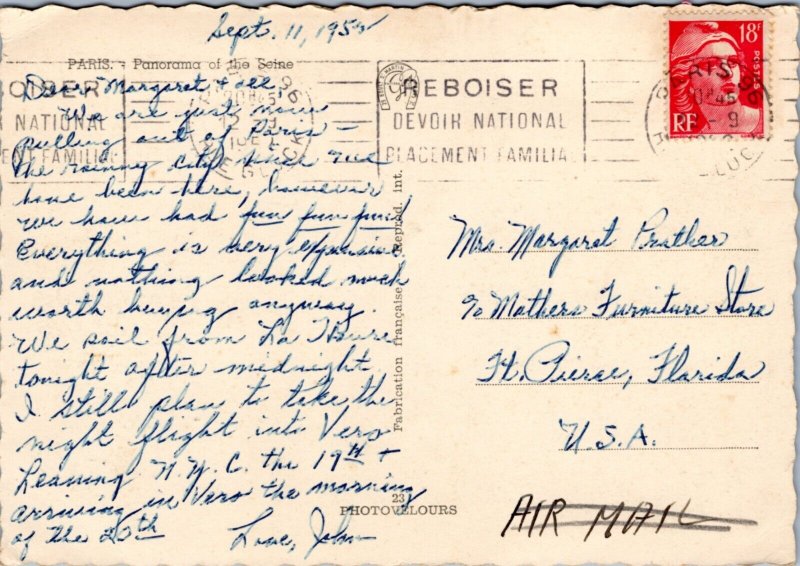 Sept. 11, 1950
PARIS. - Panorama of the Seine
Dear Margaret & all,
We are just now
pulling out of Paris -
the rainy city since we
have been here, however
we have had fun fun fun!
Everything is very expensive
and nothing looked much
worth buying anyway.
We sail from La Havre
tonight after midnight.
I still plan to take the
night flight into Vero
leaving N.Y.C. the 19th &
arriving in Vero the morning
of the 20th
Love, John
Fabrication française. Reprod. int.
23
PHOTOVELOURS
OISER
NATIONAL
ENT FAMILIA
REBOISER
DEVOIR NATIONAL
PLACEMENT FAMILIA
18F
POSTES
RF
PARIS 96
GLUCK
Mrs. Margaret Prather
c/o Mathers Furniture Store
Ft. Pierce, Florida
U.S.A.
AIR MAIL